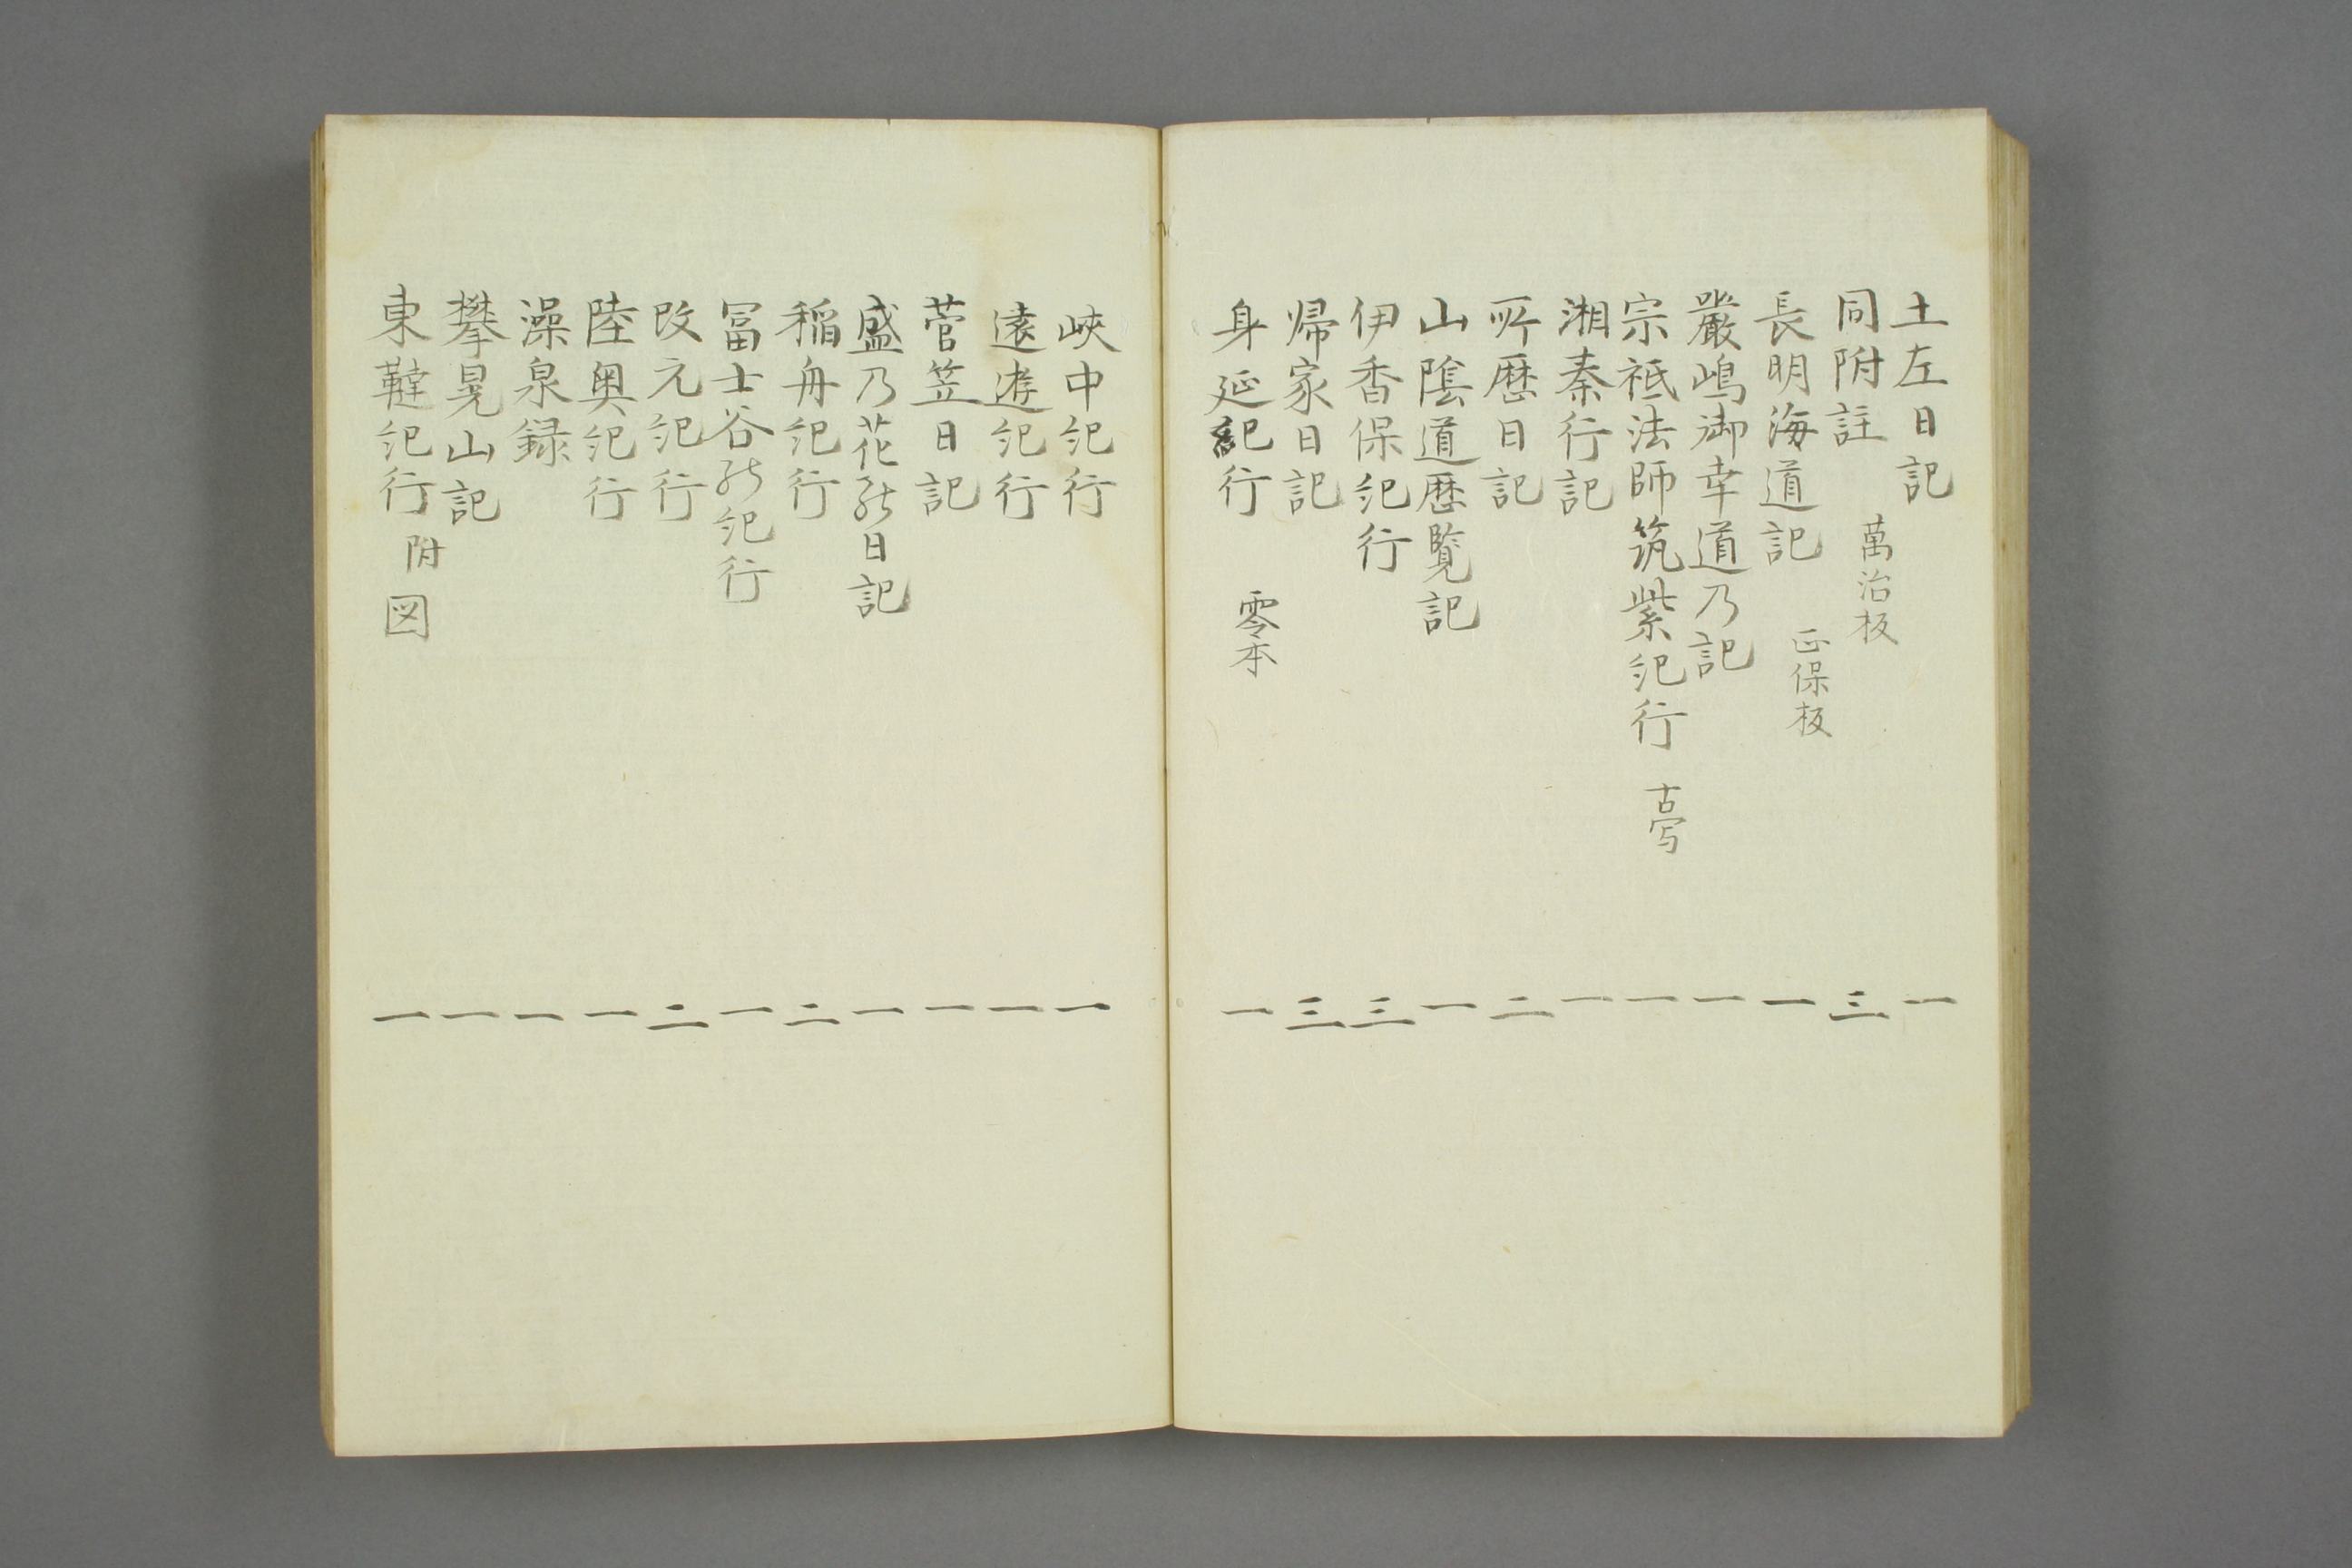 土左日記 一
同附註 萬治板 三
長明海道記 正保板 一
嚴嶋御幸道乃記 一
宗祇法師筑紫紀行 古写 一
湘秦行記 一
所歴日記 二
山陰道歴覧記 一
伊香保紀行 三
帰家日記 三
身延紀行 零本 一
峽中紀行 一
遠遊紀行 一
菅笠日記 一
盛乃花能日記 一
稲舟紀行 二
冨士谷能紀行 一
改元紀行 二
陸奥紀行 一
澡泉録 一
攀晃山記 一
東韃紀行 附図 一